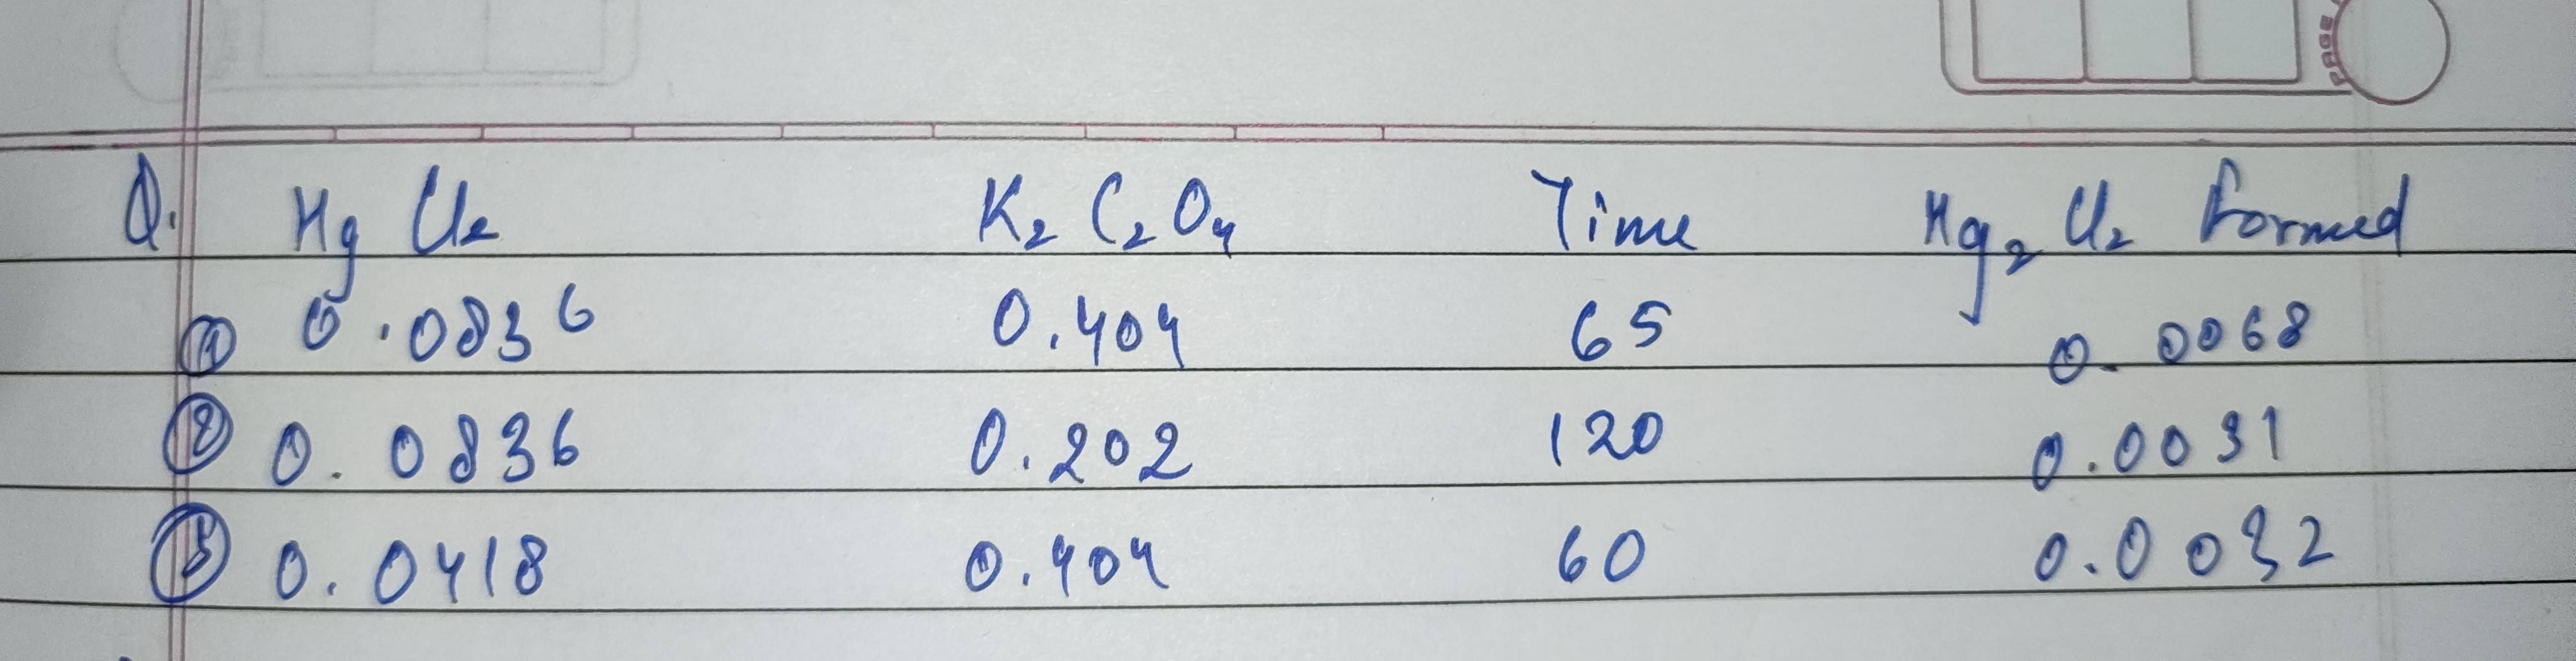 Q. HgCl2 K2C2O4 Time Hg2Cl2 formed
① 0.0836 0.404 65 0.0068
② 0.0836 0.202 120 0.0031
③ 0.0418 0.404 60 0.0032
PAGE